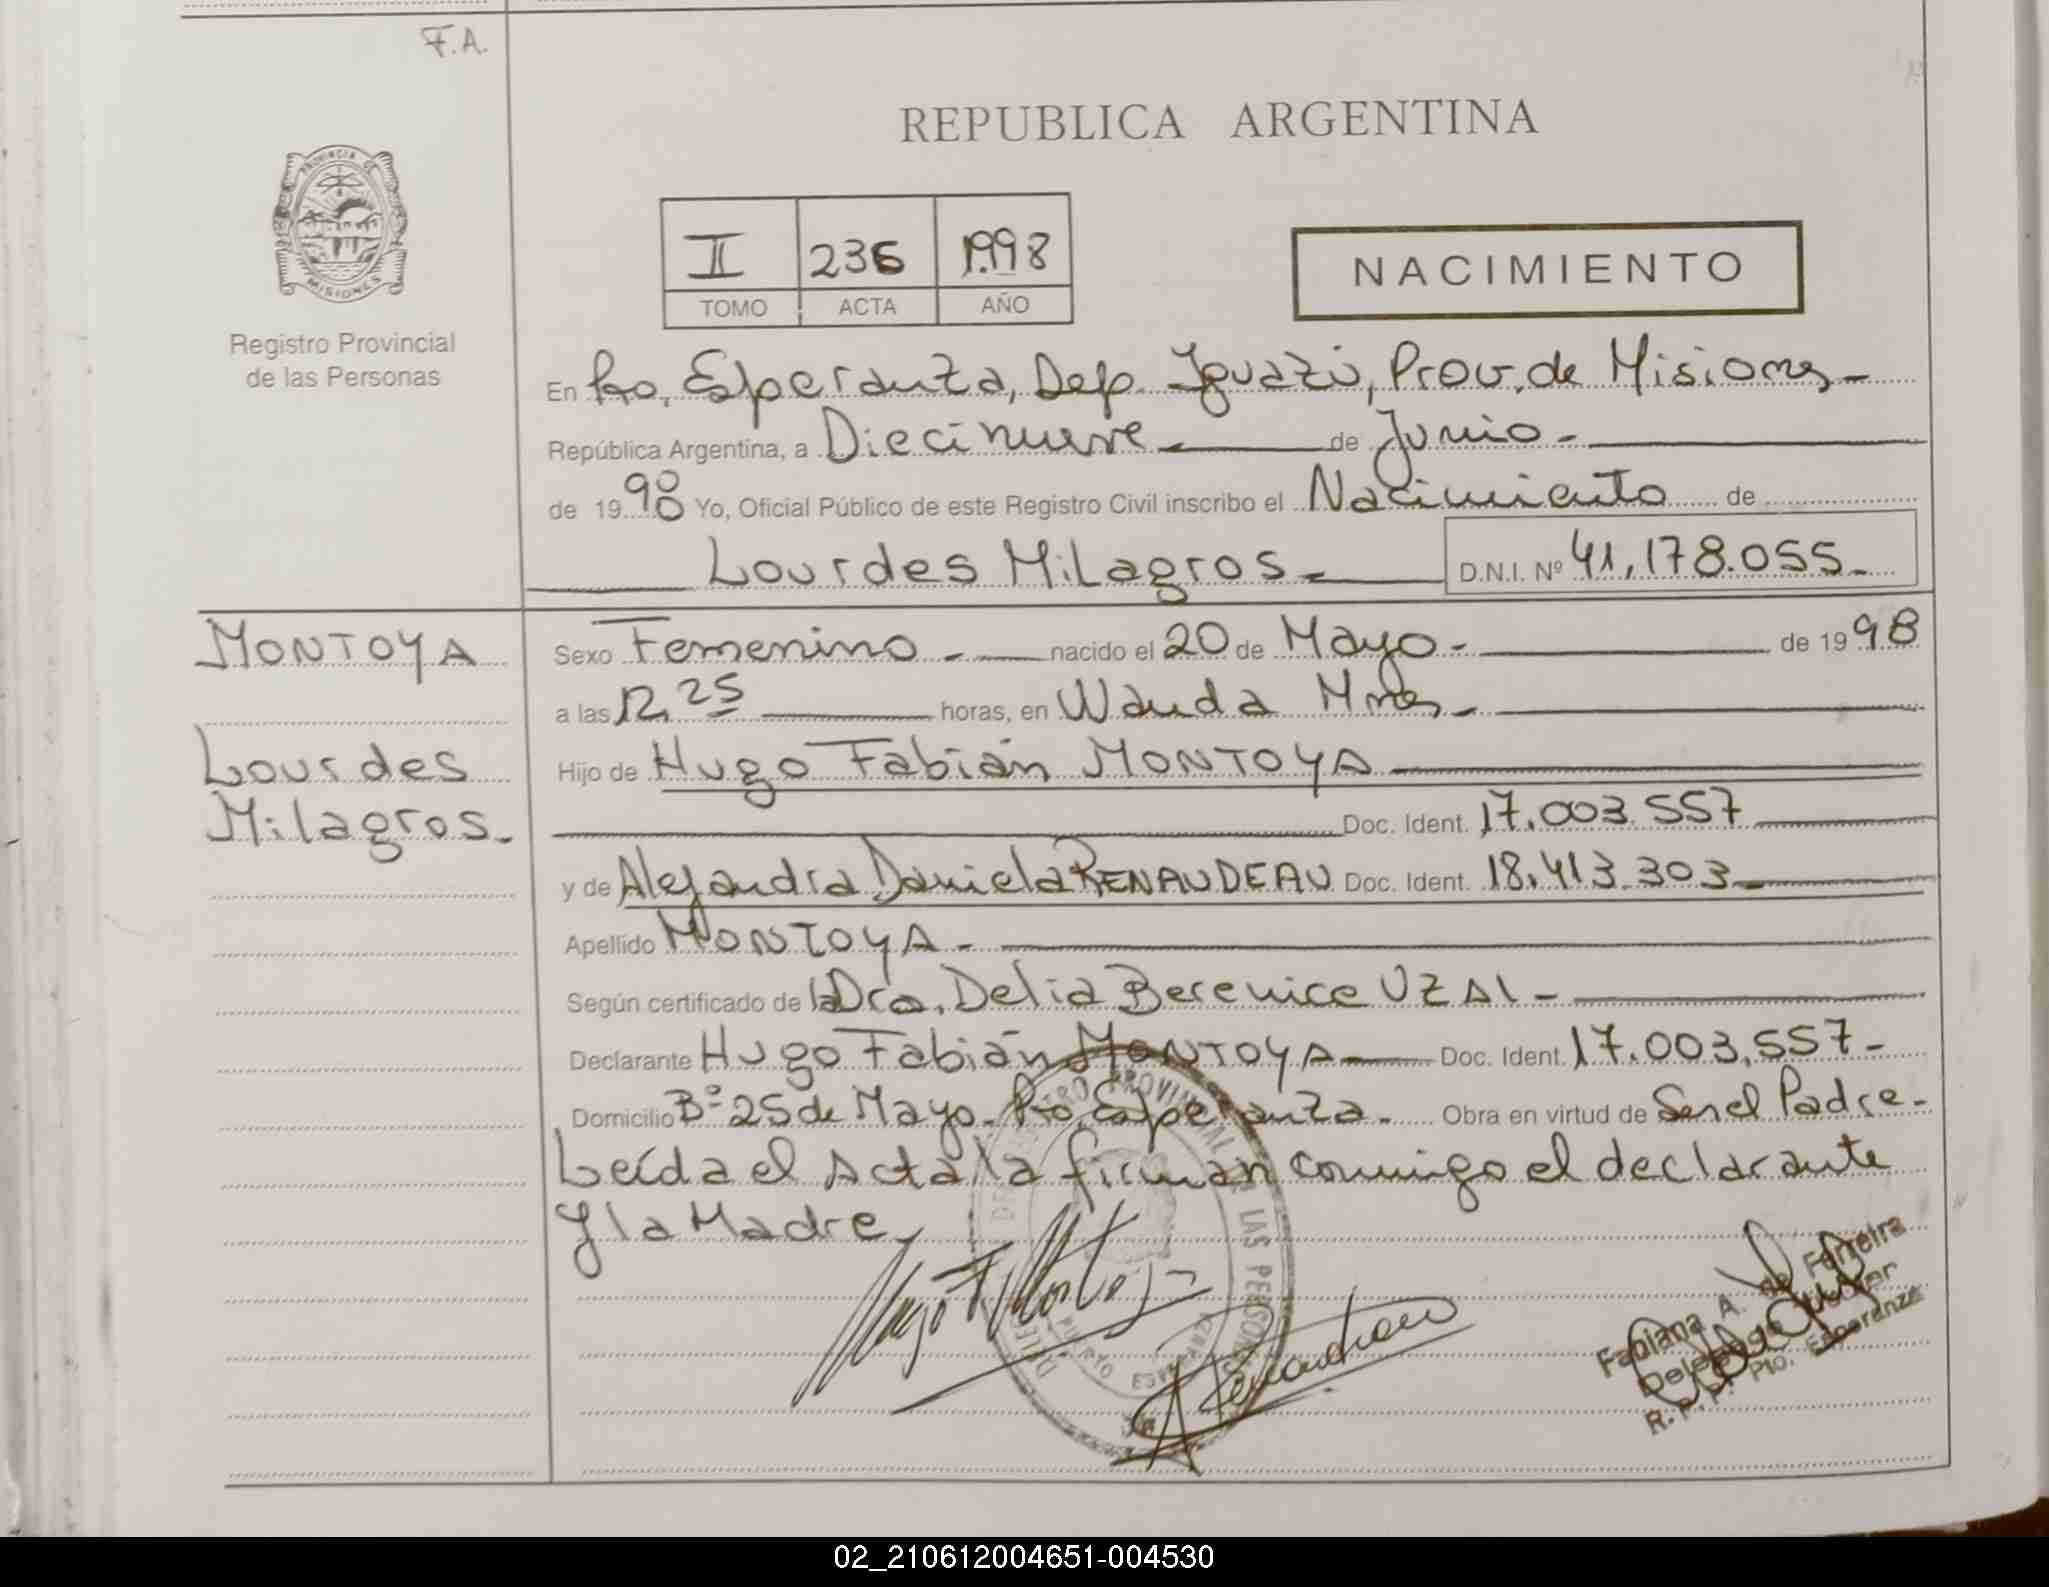 F.A.
REPUBLICA ARGENTINA
PROVINCIA DE
MISIONES
Registro Provincial
de las Personas
II 236 1998
TOMO ACTA AÑO
NACIMIENTO
En Pto. Esperanza, Dep. Iguazú, Prov. de Misiones-
República Argentina, a Diecinueve - de Junio -
de 1998 Yo, Oficial Público de este Registro Civil inscribo el Nacimiento de
Lourdes Milagros - D.N.I. Nº 41.178.055-
MONTOYA
Lourdes
Milagros-
Sexo Femenino - nacido el 20 de Mayo - de 1998
a las 12,25 horas, en Wanda Mnes-
Hijo de Hugo Fabián MONTOYA
Doc. Ident. 17.003.557
y de Alejandra Daniela RENAUDEAU Doc. Ident. 18.413.303-
Apellido MONTOYA -
Según certificado de la Dra. Delia Berenice UZAL -
Declarante Hugo Fabián MONTOYA Doc. Ident. 17.003.557-
Domicilio Bº 25 de Mayo - Pto. Esperanza - Obra en virtud de Ser el Padre-
Leída el Acta la firman conmigo el declarante
y la Madre
Fabiana A. de Ferreira
R.P.P. Pto. Esperanza
02_210612004651-004530